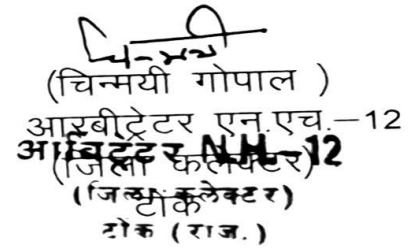 चिन्मयी
(चिन्मयी गोपाल )
आरबीट्रेटर एन.एच.–12
आर्बिट्रेटर N.H.–12
(जिला कलेक्टर)
(जिला कलेक्टर)
टोंक
टोंक (राज.)